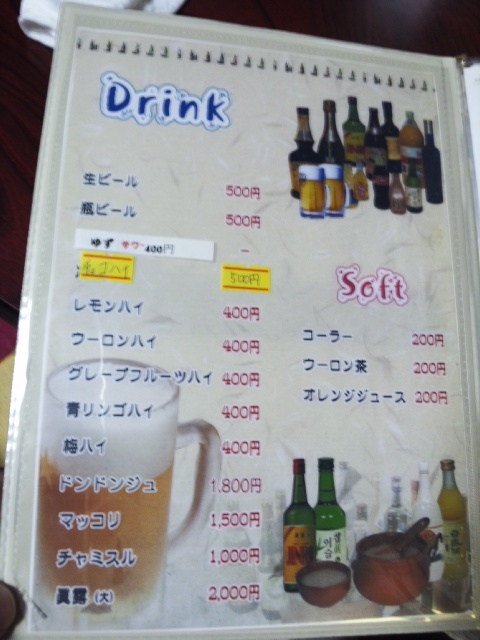 Drink
生ビール 500円
瓶ビール 500円
ゆず サワー 400円
ハイ 500円
レモンハイ 400円
ウーロンハイ 400円
グレープフルーツハイ 400円
青リンゴハイ 400円
梅ハイ 400円
ドンドンジュ 1,800円
マッコリ 1,500円
チャミスル 1,000円
眞露 (大) 2,000円
Soft
コーラー 200円
ウーロン茶 200円
オレンジジュース 200円